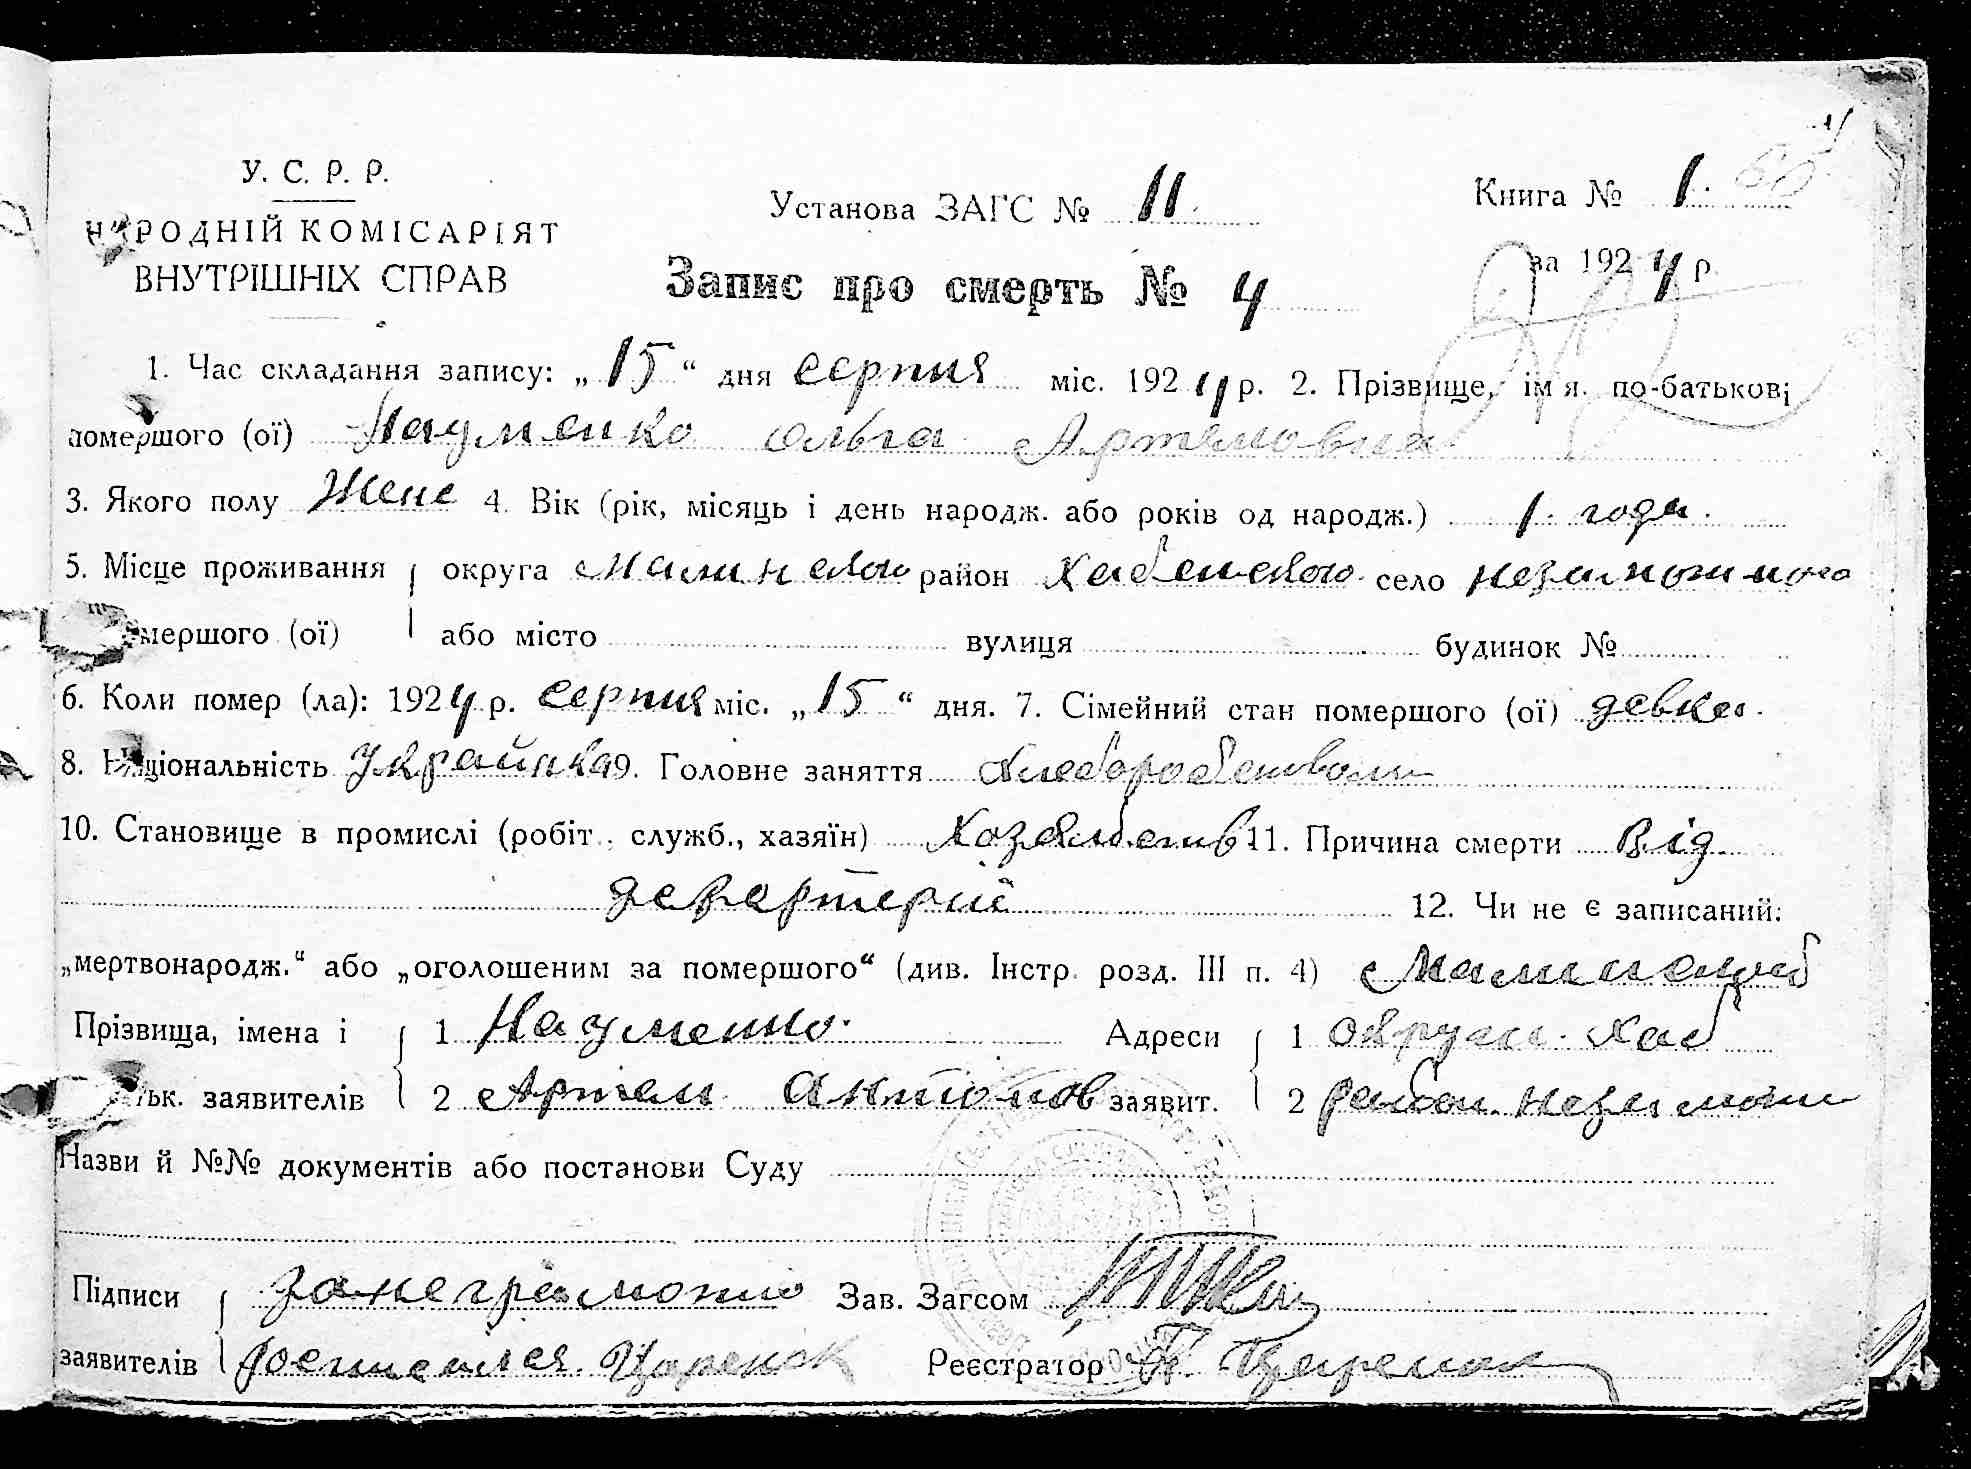 У. С. Р. Р.
НАРОДНІЙ КОМІСАРІЯТ
ВНУТРІШНІХ СПРАВ
Установа ЗАГС № 11.
Книга № 1.
за 1924 р.
Запис про смерть № 4
1. Час складання запису: „15“ дня серпня міс. 1924 р. 2. Прізвище, імя. по-батькові
помершого (ої) Науменко Ольга Артемовна
3. Якого полу Жене 4. Вік (рік, місяць і день народж. або років од народж.) 1. года.
5. Місце проживання округа Малинской район Хабенского село Незаможного
помершого (ої) або місто вулиця будинок №
6. Коли помер (ла): 1924 р. серпня міс. „15“ дня. 7. Сімейний стан помершого (ої) девка.
8. Національність Украйнка 9. Головне заняття Хлеборобством
10. Становище в промислі (робіт., служб., хазяїн) Хозяйств 11. Причина смерти Від
12. Чи не є записаний:
„мертвонародж.“ або „оголошеним за помершого“ (див. Інстр. розд. III п. 4) Малинской
Прізвища, імена і 1 Науменко. Адреси 1 округи. Хаб
батьк. заявителів 2 Артем Антонов заявит. 2 район. Незаможн
Назви й №№ документів або постанови Суду
Підписи за неграмотно Зав. Загсом
заявителів росписался Царенок Реєстратор П. Царенок